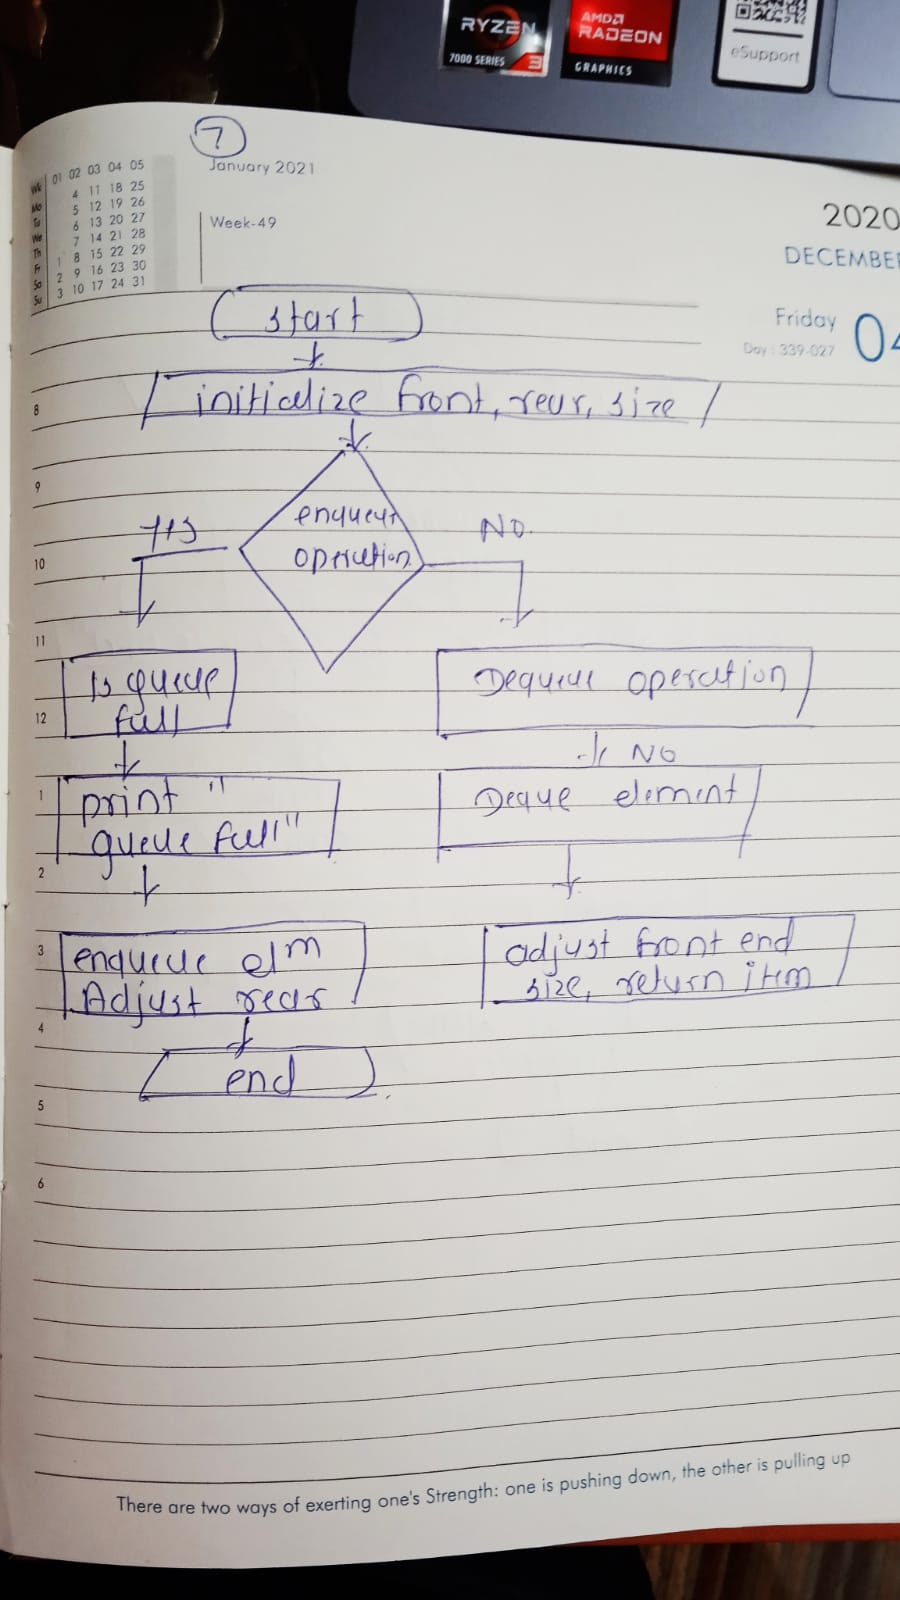 RYZEN
7000 SERIES 3
AMD
RADEON
GRAPHICS
eSupport
7
January 2021
Wk 01 02 03 04 05
Mo 4 11 18 25
Tu 5 12 19 26
We 6 13 20 27
Th 7 14 21 28
Fr 1 8 15 22 29
Sa 2 9 16 23 30
Su 3 10 17 24 31
Week-49
2020
DECEMBER
Friday 04
Day : 339-027
start
initialize front, rear, size
8
9
enqueue
operation
yes
No.
10
11
Is queue
full
Dequeue operation
12
NO
1
print "
queue full"
Deque element
2
3
enqueue elm
Adjust rear
adjust front end
size, return item
4
end
5
6
There are two ways of exerting one's Strength: one is pushing down, the other is pulling up